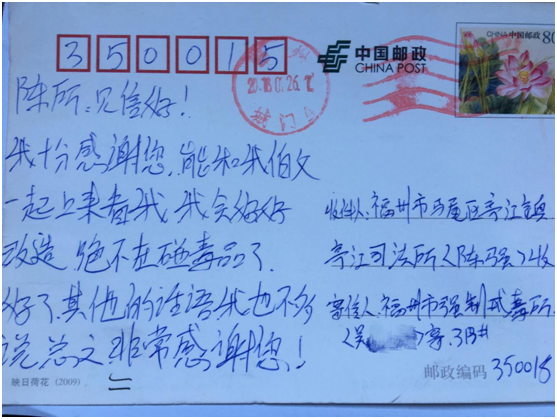 350015
中国邮政
CHINA POST
80
2018.07.26.12
陈所：见信好！
我十分感谢您，能和我伯父
一起上来看我，我会好好
改造，绝不在碰毒品了。
好了，其他的话语我也不多
说总之，非常感谢您！
收件人：福州市马尾区亭江镇
亭江司法所〈陈强〉收
寄信人：福州市强制戒毒所，
〈吴 〉寄.3B#
邮政编码 350015
映日荷花（2009）